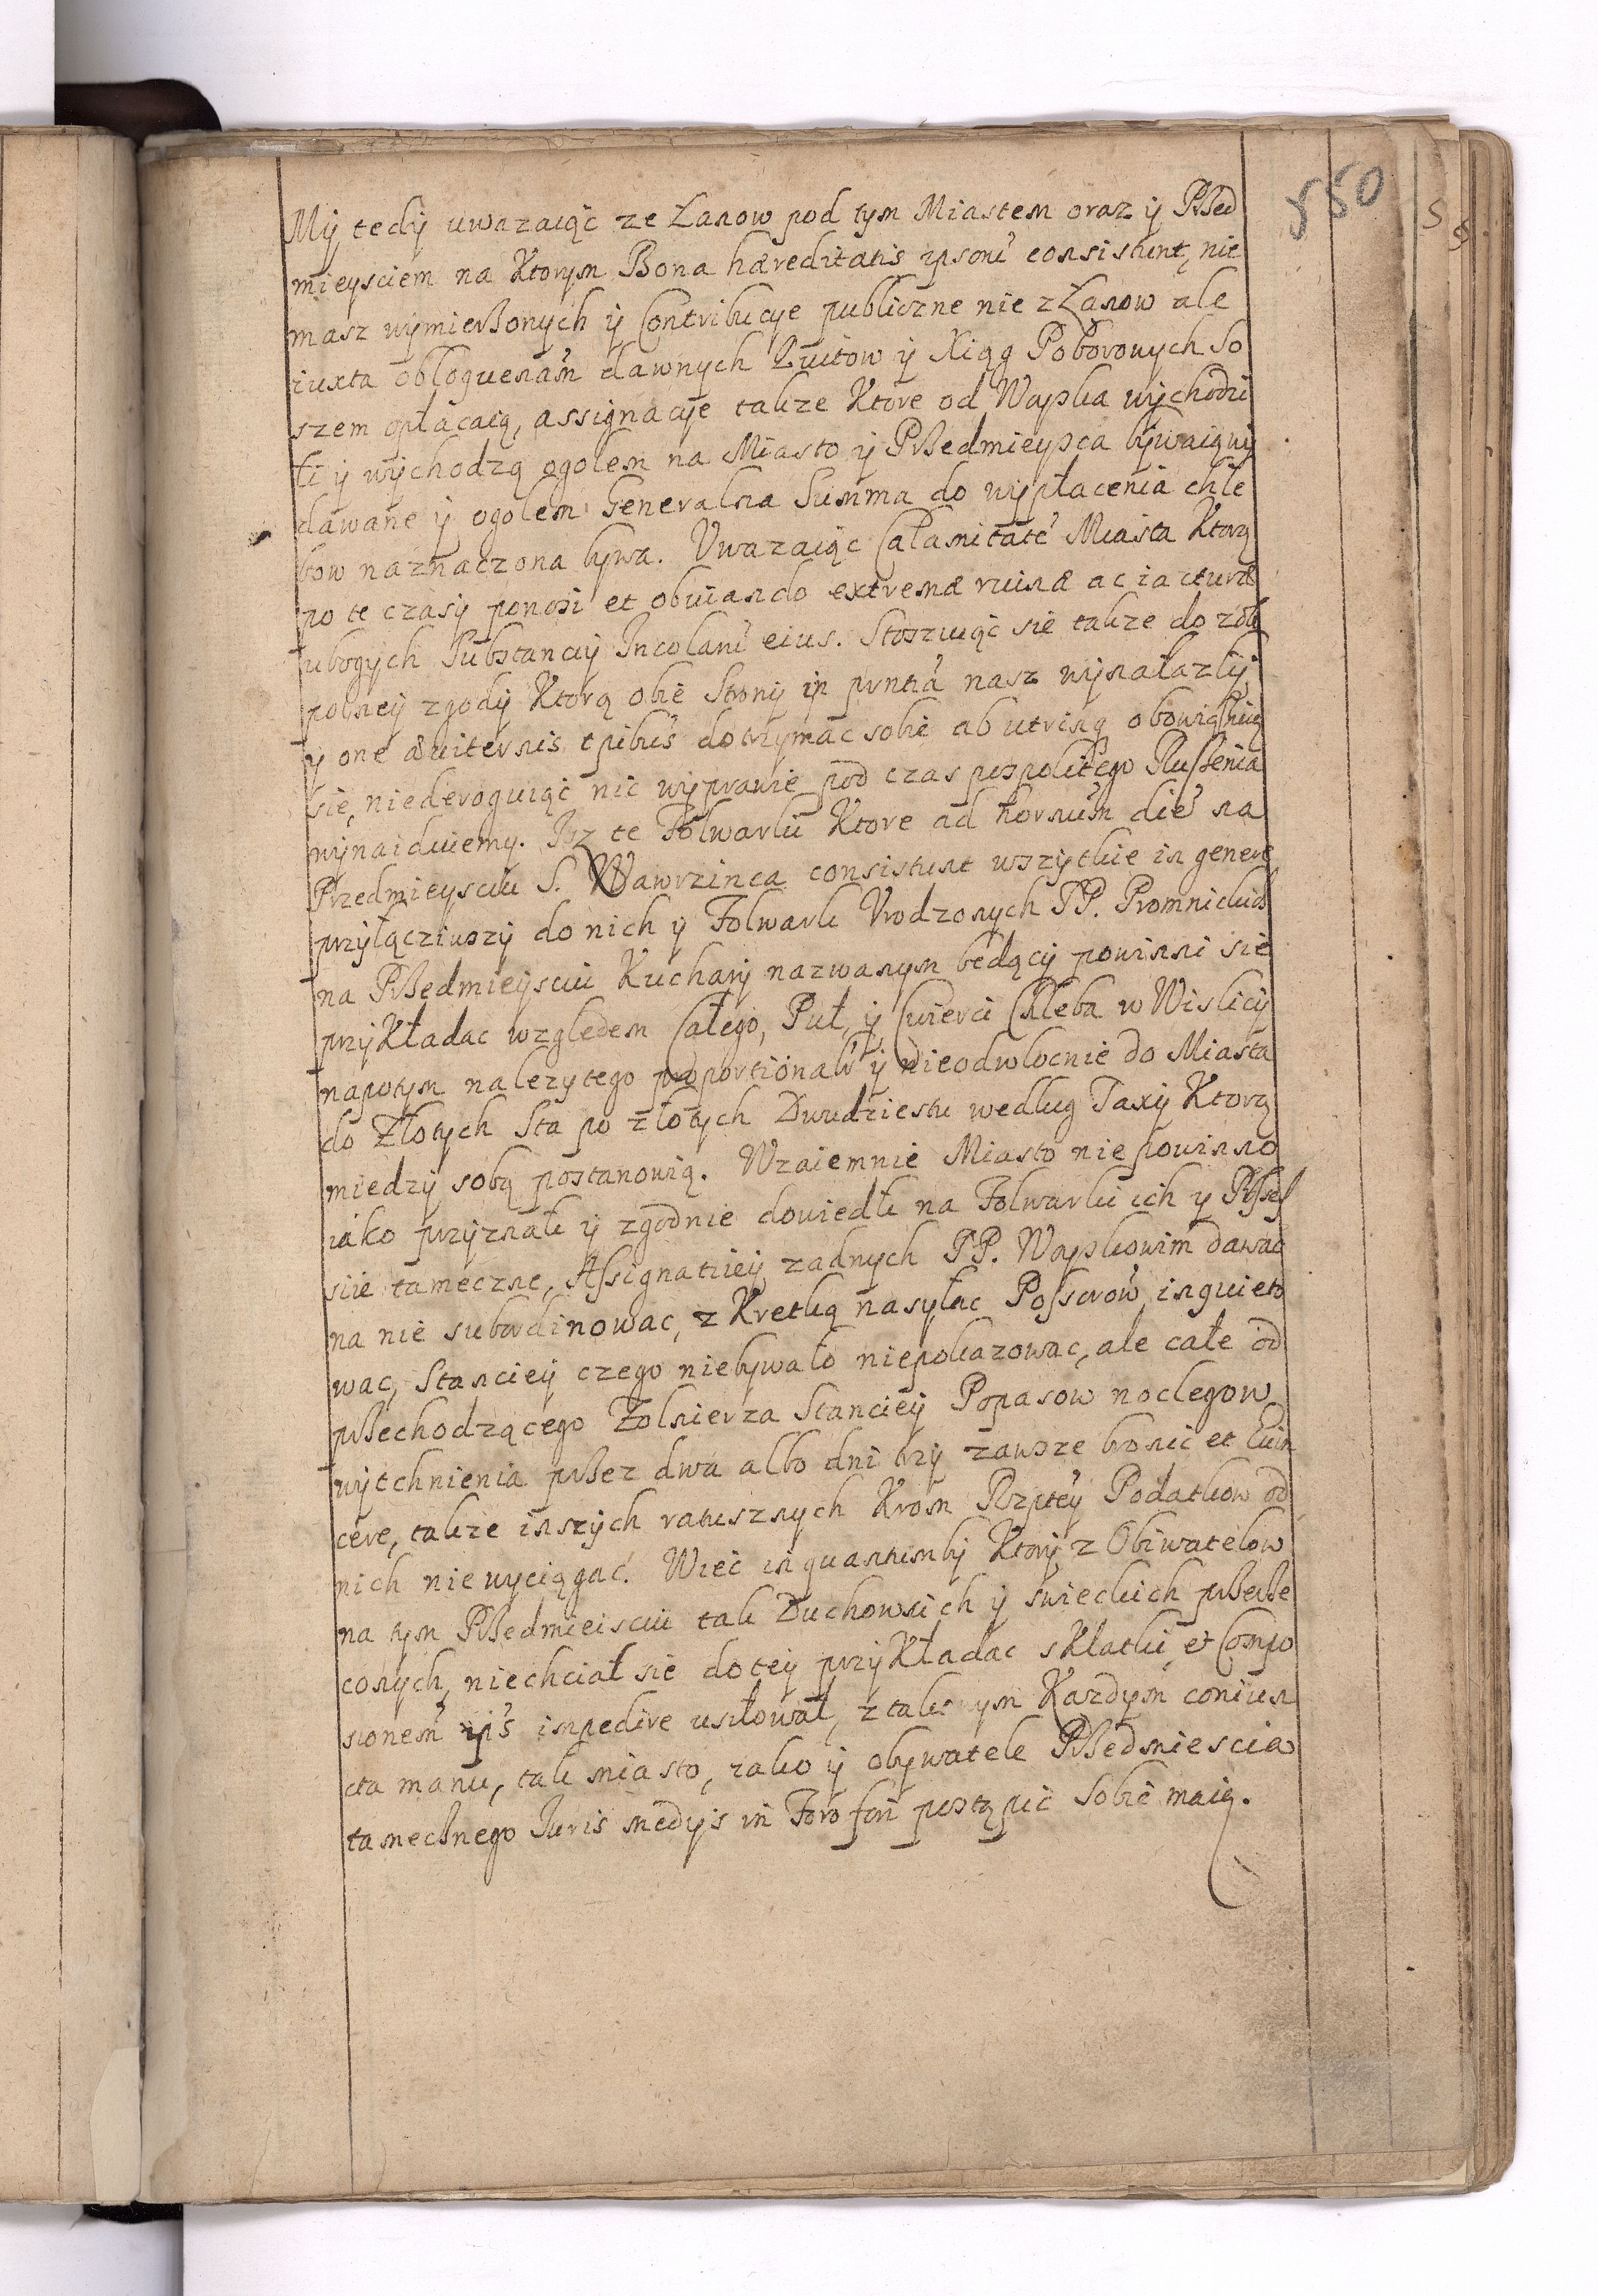 550
Mÿ tedÿ uwazaiąc ze Łanow pod tym Miastem oraz ÿ Przed
mieysciem na Ktorym Bona hæreditatis ipsorũ consistunt, nie
masz wymierzonych ÿ Contribucye publiczne nie z Łanow ale
iuxta obloquenām dawnych Kwitow ÿ Xiąg Poborowych So
szem opłacaią, assignacye takze Ktore od Woyska wychodzi
ti ÿ wychodzą ogolem na Miasto ÿ Przedmieysca bywaią wÿ
dawane ÿ ogolem Generalna Summa do wypłacenia chle
bow naznaczona bywa. Uwazaiąc Calamitatē Miasta Ktorą
po te czasÿ ponosi et obuiando extremæ ruinæ ac iacturæ
ubogych Substancÿ Incolarũ eius. Stoszuiąc sie takze do zob
polney zgodÿ Ktorą obie Stronÿ in pṙntia nasz wynalazlÿ
y one æuiternis tpibus dotrzymac sobie ab utrinq obowiązuią
sie, niederoguiąc nic wyprawie pod czas pospolitego Ruszenia
wynaiduiemy. Isz te Folwarki Ktore ad hornũm diē na
Przedmieysciu S. Wawrzinca consistunt wszytkie in genere
przyłącziwszy do nich y Folwark Urodzonych PP. Promnickich
na Przedmieysciu Kuchary nazwanym będący powinni się
przykładac względem Całego, Puł, ÿ Cwierci Chleba w Wislicÿ
napotym nalezytego proportionalr ÿ nieodwlocnie do Miasta
do Złotych Sta po złotych Dwudziestu wedlug Taxÿ Ktorą
miedzÿ sobą postanowią. Wzaiemnie Miasto nie powinno
iako przyznali ÿ zgodnie dowiedli na Folwarki ich y Posses
siie tameczne, Assignatiiey zadnych PP. Woyskowim dawac
na nie subordinowac, z Kretką nasyłac Possorow inquieto
wac, Stanciey czego niebywało niepokazowac, ale całe od
przechodzącego Zolnierza Stanciey Popasow noclegow
wytchnienia przez dwa albo dni trzy zawsze bronic et Euin
cere, takze inszych ratusznych Krom Rzptey Podatkow od
nich nie wyciągac. Wiec in quantumby Ktorÿ z Obiwatelow
na tym Przedmieisciu tak Duchownich ÿ swieckich przerze
conych, niechciał sie do tey przykładac składki et Compo
sionem ips impedire usiłował, z takowym Kazdym coniun
cta manu, tak miasto, iako ÿ obywatele Przedmiescia
tamecznego Iuris medys in Foro fori postąpic Sobie maią.